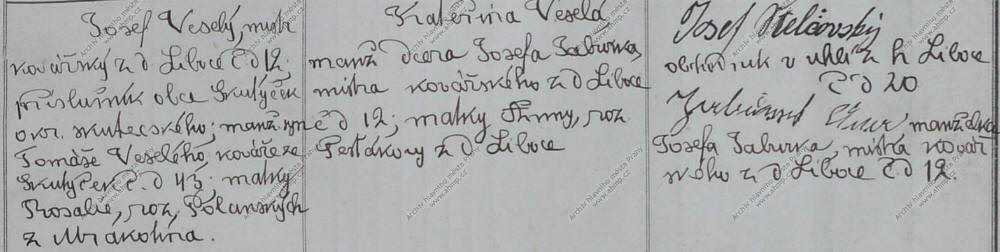 Josef Veselý, mistr
kovářský z d. Liboce č. d 12.
příslušník obce Skutíček
okr. skutečského; manž. syn
Tomáše Veselého, kováře ze
Skutíček č. d 43; matky
Rosalie, roz. Polanských
z Mrákotína.
Kateřina Veselá,
manž dcera Josefa Saburka,
mistra kovářského z d Liboce
č d 12; matky Anny, roz.
Peštákovy z d Liboce
Josef
obchodník v uhlí z h Liboce
č d 20
manželka
Josefa Saburka, mistra kovář
ského z d. Liboce č d 12.
Archiv hlavního města Prahy
www.ahmp.cz